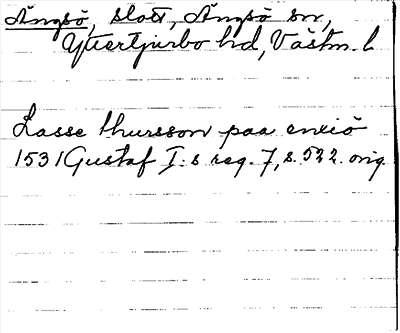 Ängsö, slott, Ängsö sn,
Yttertjurbo hd, Västm. l.
Lasse thursson paa enxiö
1531 Gustaf I:s reg. 7, s. 522. orig.